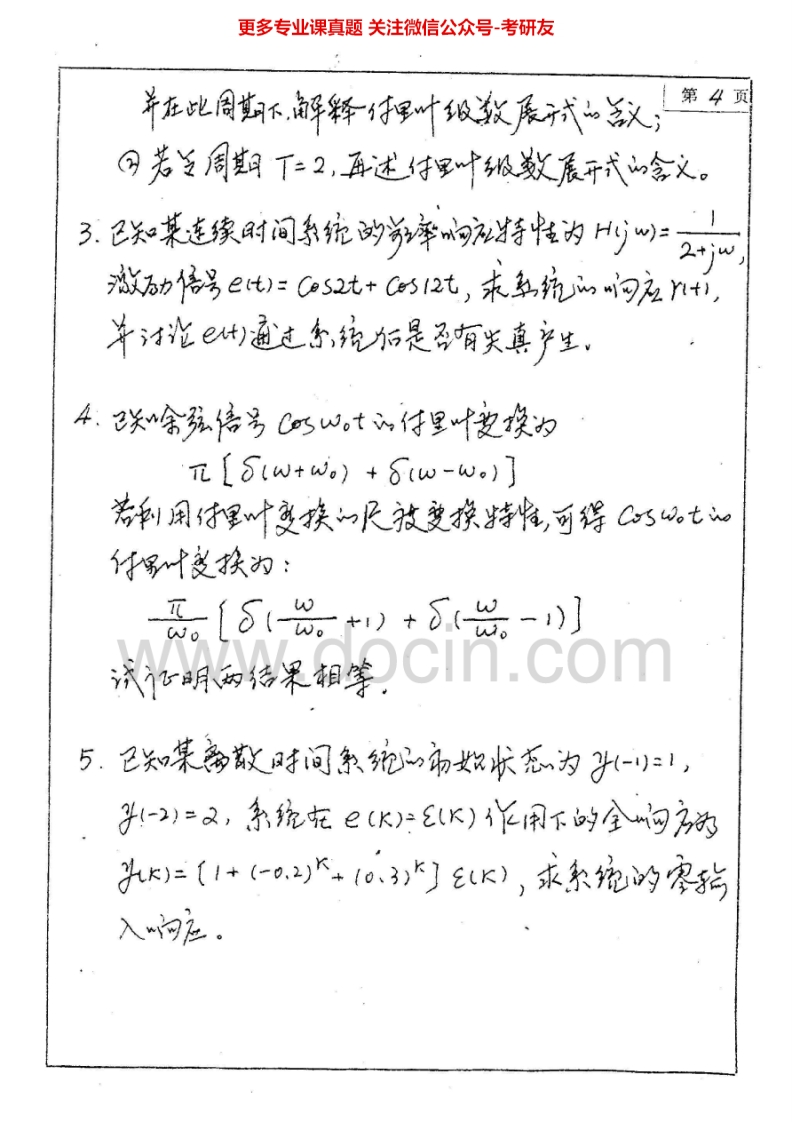 更多专业课真题 关注微信公众号-考研友
第 4 页
并在此周期下,解释付里叶级数展开式的含义;
② 若定周期 T=2, 再述付里叶级数展开式的含义。
3. 已知某连续时间系统的频率响应特性为 H(jω)= 1/(2+jω),
激励信号 e(t)= Cos2t + Cos12t, 求系统的响应 r(t),
并讨论 e(t) 通过系统后是否有失真产生.
4. 已知余弦信号 Cosω₀t 的付里叶变换为
π [ δ(ω+ω₀) + δ(ω-ω₀) ]
若利用付里叶变换的尺度变换特性,可得 Cosω₀t 的
付里叶变换为:
π/ω₀ [ δ(ω/ω₀ +1) + δ(ω/ω₀ -1) ]
www.docin.com
试证明两结果相等.
5. 已知某离散时间系统的初始状态为 y(-1)=1,
y(-2)=2, 系统在 e(k)=ε(k) 作用下的全响应为
y(k)= [1+(-0.2)ᵏ+(0.3)ᵏ] ε(k), 求系统的零输
入响应。